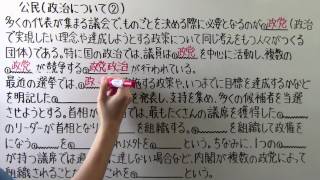 公民(政治について②)
多くの代表が集まる議会で、ものごとを決める際に必要となるのが①政党(政治
で実現したい理念や達成しようとする政策について同じ考えをもつ人々がつくる
団体)である。特に国の政治では、議員は①政党を中心に活動し、複数の
①政党が競争する②政党政治が行われている。
最近の選挙では、①政 施する政策や、いつまでに目標を達成するかなど
を明記した を発表し、支持を集め、多くの候補者を当選
させようとする。 では、最もたくさんの議員を獲得した
のリーダーが首相とな を組織する。 を組織して政権を
になう それ以外を という。ちなみに、1つの
が持つ議席では過 に達しない場合など、内閣が複数の政党によって
組織されること これを という。